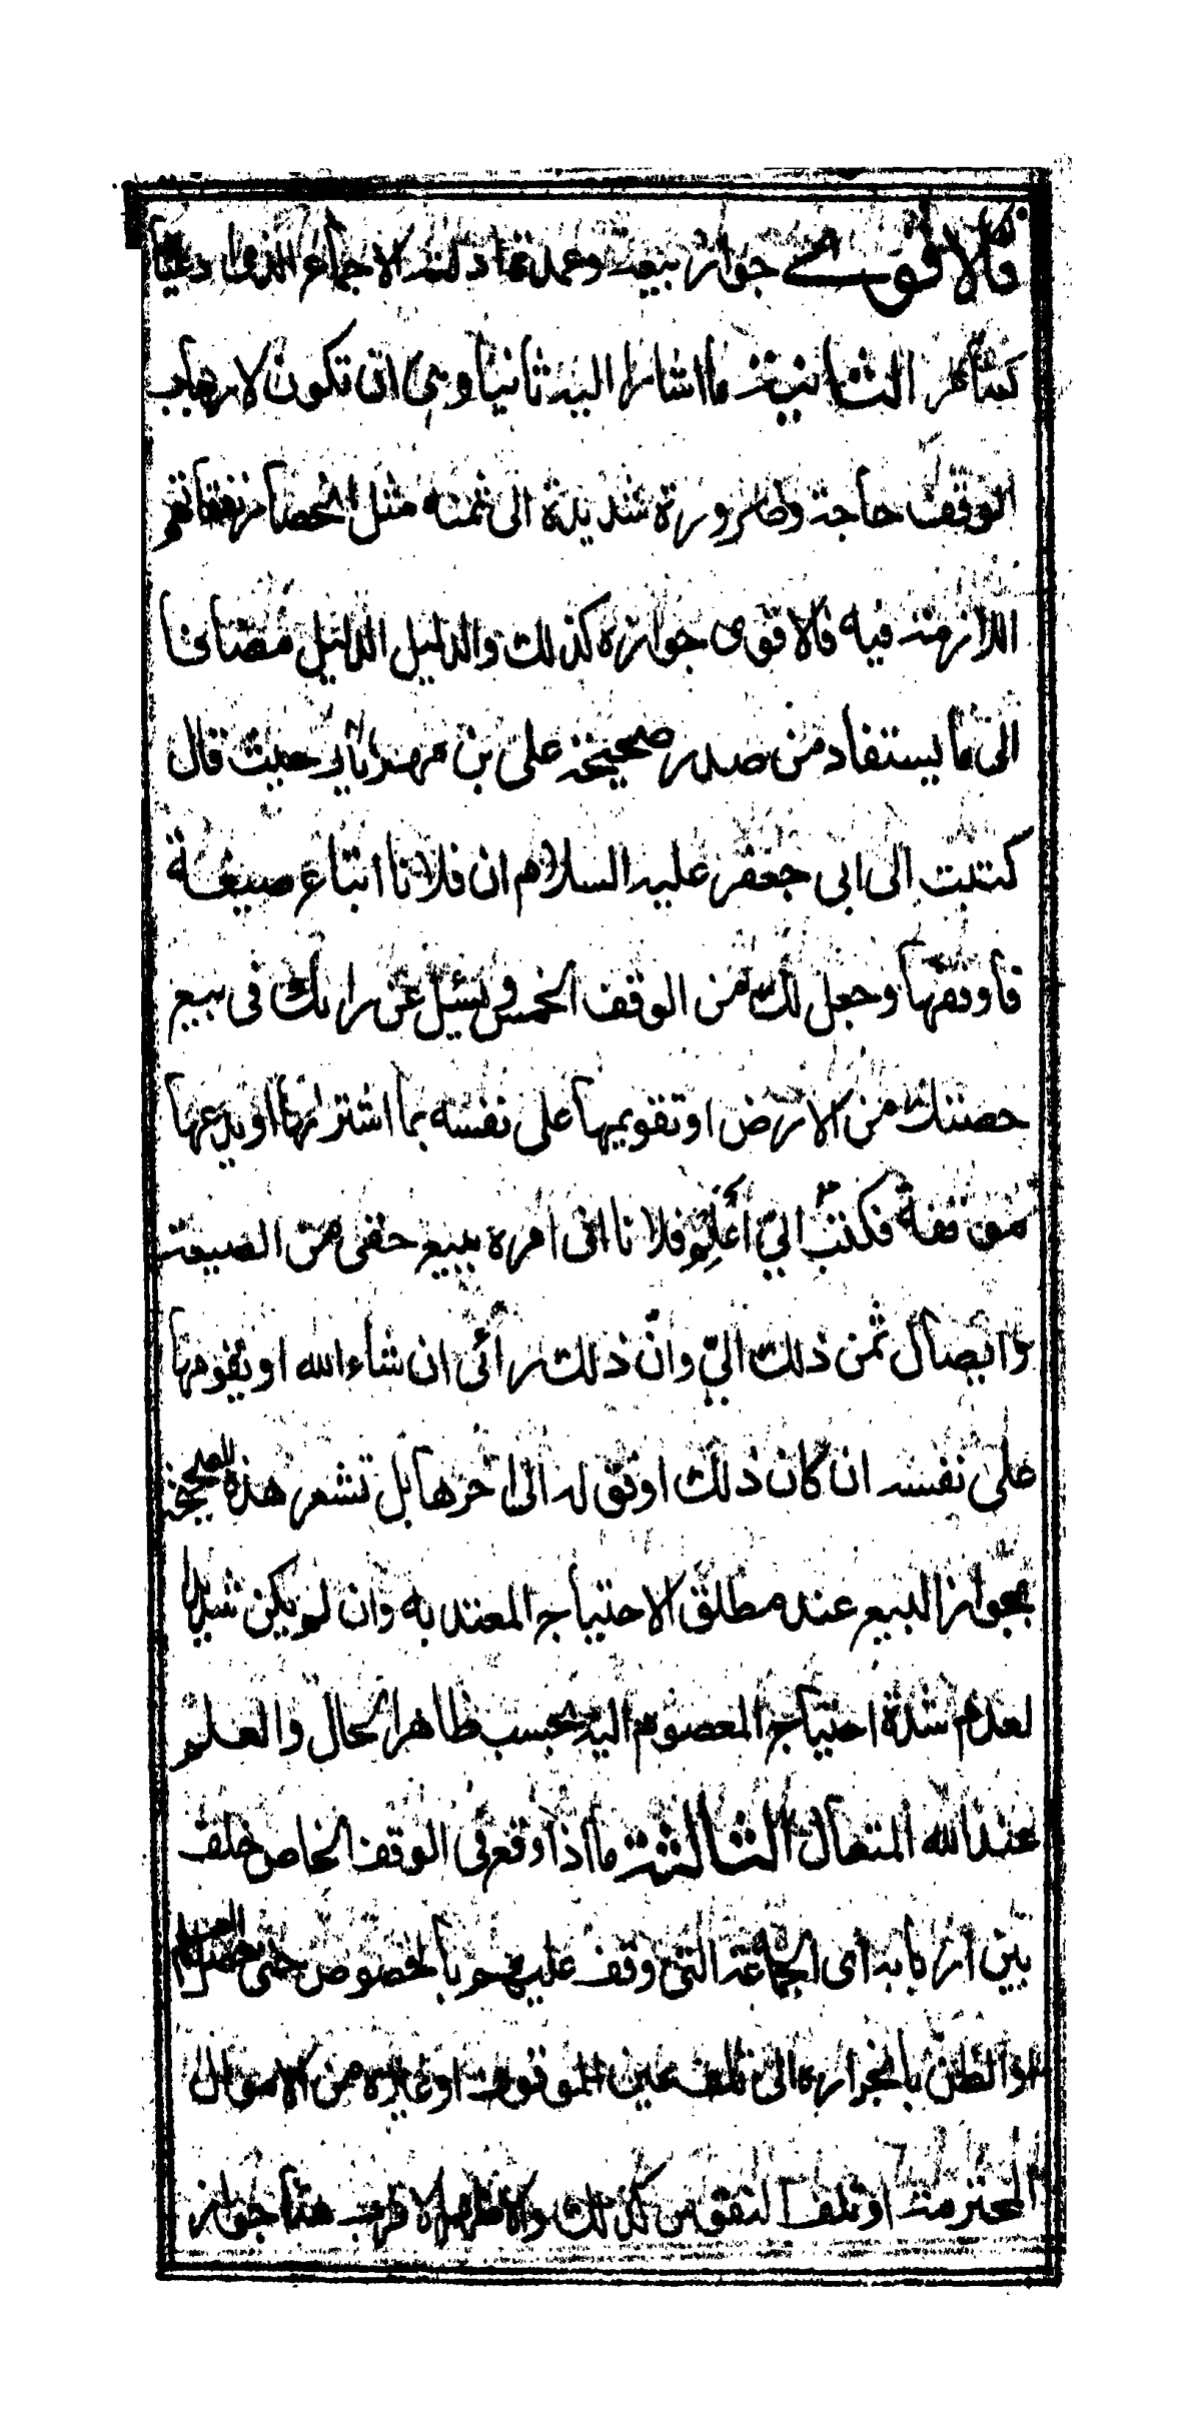 فالاقوى جواز بيعه وعمدة ادلته الاجماع الذى ادعينا
كما مر الثانية ما اشار اليه ثانيا وهى ان تكون لارباب
الوقف حاجة وضرورة شديدة الى ثمنه مثل انحصار نفقاتهم
اللازمة فيه فالاقوى جوازه كذلك والدليل الدليل مضافا
الى ما يستفاد من صدر صحيحة على بن مهزيار حيث قال
كتبت الى ابى جعفر عليه السلام ان فلانا ابتاع ضيعة
فاوقفها وجعل لك من الوقف الخمس ويسئل عن رايك فى بيع
حصتك من الارض او تقويمها على نفسه بما اشتراها او يدعها
موقفة فكتب الىّ اعلم فلانا انى امره ببيع حقى من الضيعة
وايصال ثمن ذلك الىّ وانّ ذلك رائى ان شاء الله او يقومها
على نفسه ان كان ذلك اوفق له الى اخرها بل تشعر هذه الصحيحة
بجواز البيع عند مطلق الاحتياج المعتد به وان لم يكن شديدا
لعدم شدة احتياج المعصوم اليه بحسب ظاهر الحال والعلم
عند الله المتعال الثالثة ما اذا وقع فى الوقف الخاص خلف
بين اربابه اى الجماعة التى وقف عليهم بالخصوص حتى حصل العلم
او الظن بانجراره الى تلف عين الموقوف او غيره من الاموال
المحترمة او تلف النفوس كذلك والاظهر الاقرب هنا جواز